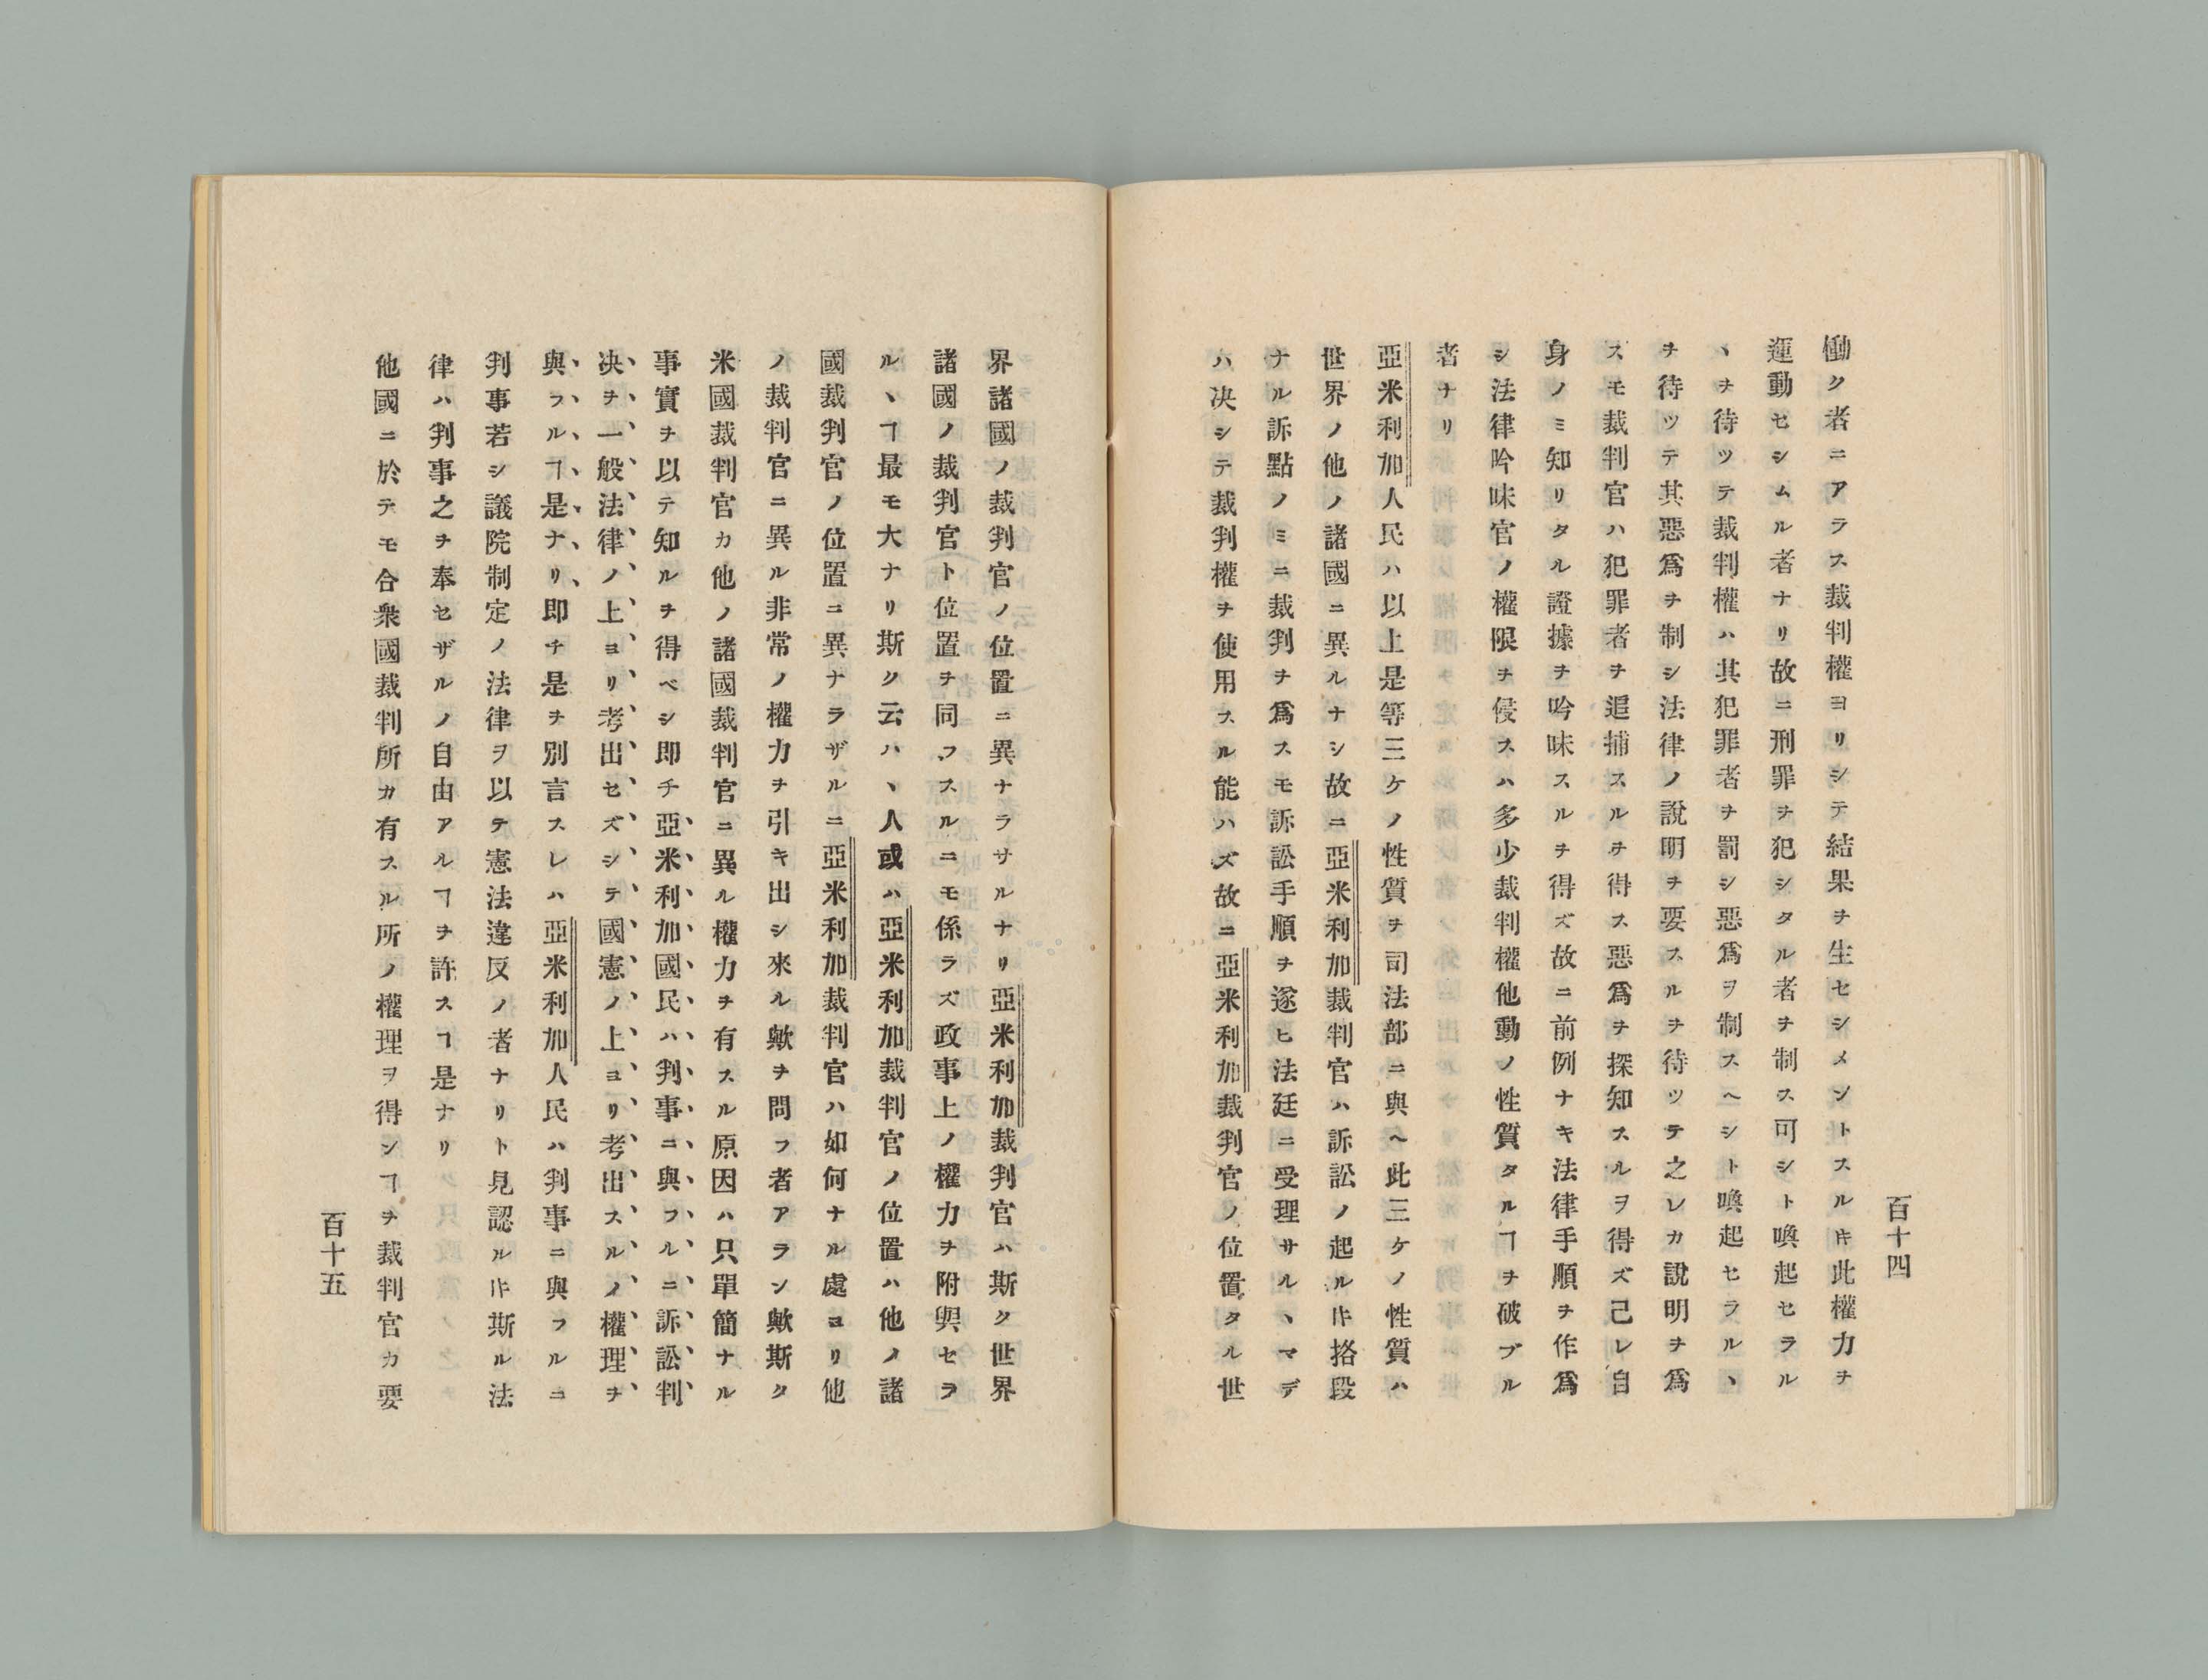 百十四
働ク者ニアラス裁判權ヨリシテ結果ヲ生セシメントスルヰ此權力ヲ
運動セシムル者ナリ故ニ刑罪ヲ犯シタル者ヲ制ス可シト喚起セラル
ヽヲ待ツテ裁判權ハ其犯罪者ヲ罰シ惡爲ヲ制スヘシト喚起セラルヽ
ヲ待ツテ其惡爲ヲ制シ法律ノ說明ヲ要スルヲ待ツテ之レカ說明ヲ爲
スモ裁判官ハ犯罪者ヲ追捕スルヲ得ス惡爲ヲ探知スルヲ得ズ己レ自
身ノミ知リタル證據ヲ吟味スルヲ得ズ故ニ前例ナキ法律手順ヲ作爲
シ法律吟味官ノ權限ヲ侵スハ多少裁判權他動ノ性質タルヿヲ破ブル
者ナリ
亞米利加人民ハ以上是等三ケノ性質ヲ司法部ニ與ヘ此三ケノ性質ハ
世界ノ他ノ諸國ニ異ルナシ故ニ亞米利加裁判官ハ訴訟ノ起ルヰ挌段
ナル訴點ノミニ裁判ヲ爲スモ訴訟手順ヲ遂ヒ法廷ニ受理サルヽマデ
ハ决シテ裁判權ヲ使用スル能ハズ故ニ亞米利加裁判官ノ位置タル世
界諸國ノ裁判官ノ位置ニ異ナラサルナリ亞米利加裁判官ハ斯ク世界
諸國ノ裁判官ト位置ヲ同フスルニモ係ラズ政事上ノ權力ヲ附與セラ
ルヽヿ最モ大ナリ斯ク云ハヽ人或ハ亞米利加裁判官ノ位置ハ他ノ諸
國裁判官ノ位置ニ異ナラザルニ亞米利加裁判官ハ如何ナル處ヨリ他
ノ裁判官ニ異ル非常ノ權力ヲ引キ出シ來ル歟ヲ問フ者アラン歟斯ク
米國裁判官カ他ノ諸國裁判官ニ異ル權力ヲ有スル原因ハ只單簡ナル
事實ヲ以テ知ルヲ得ベシ即チ亞米利加國民ハ判事ニ與フルニ訴訟判
决ヲ一般法律ノ上ヨリ考出セズシテ國憲ノ上ヨリ考出スルノ權理ヲ
與フルヿ是ナリ即チ是ヲ別言スレハ亞米利加人民ハ判事ニ與フルニ
判事若シ議院制定ノ法律ヲ以テ憲法違反ノ者ナリト見認ルヰ斯ル法
律ハ判事之ヲ奉セザルノ自由アルヿヲ許スヿ是ナリ
他國ニ於テモ合衆國裁判所カ有スル所ノ權理ヲ得シヿヲ裁判官カ要
百十五